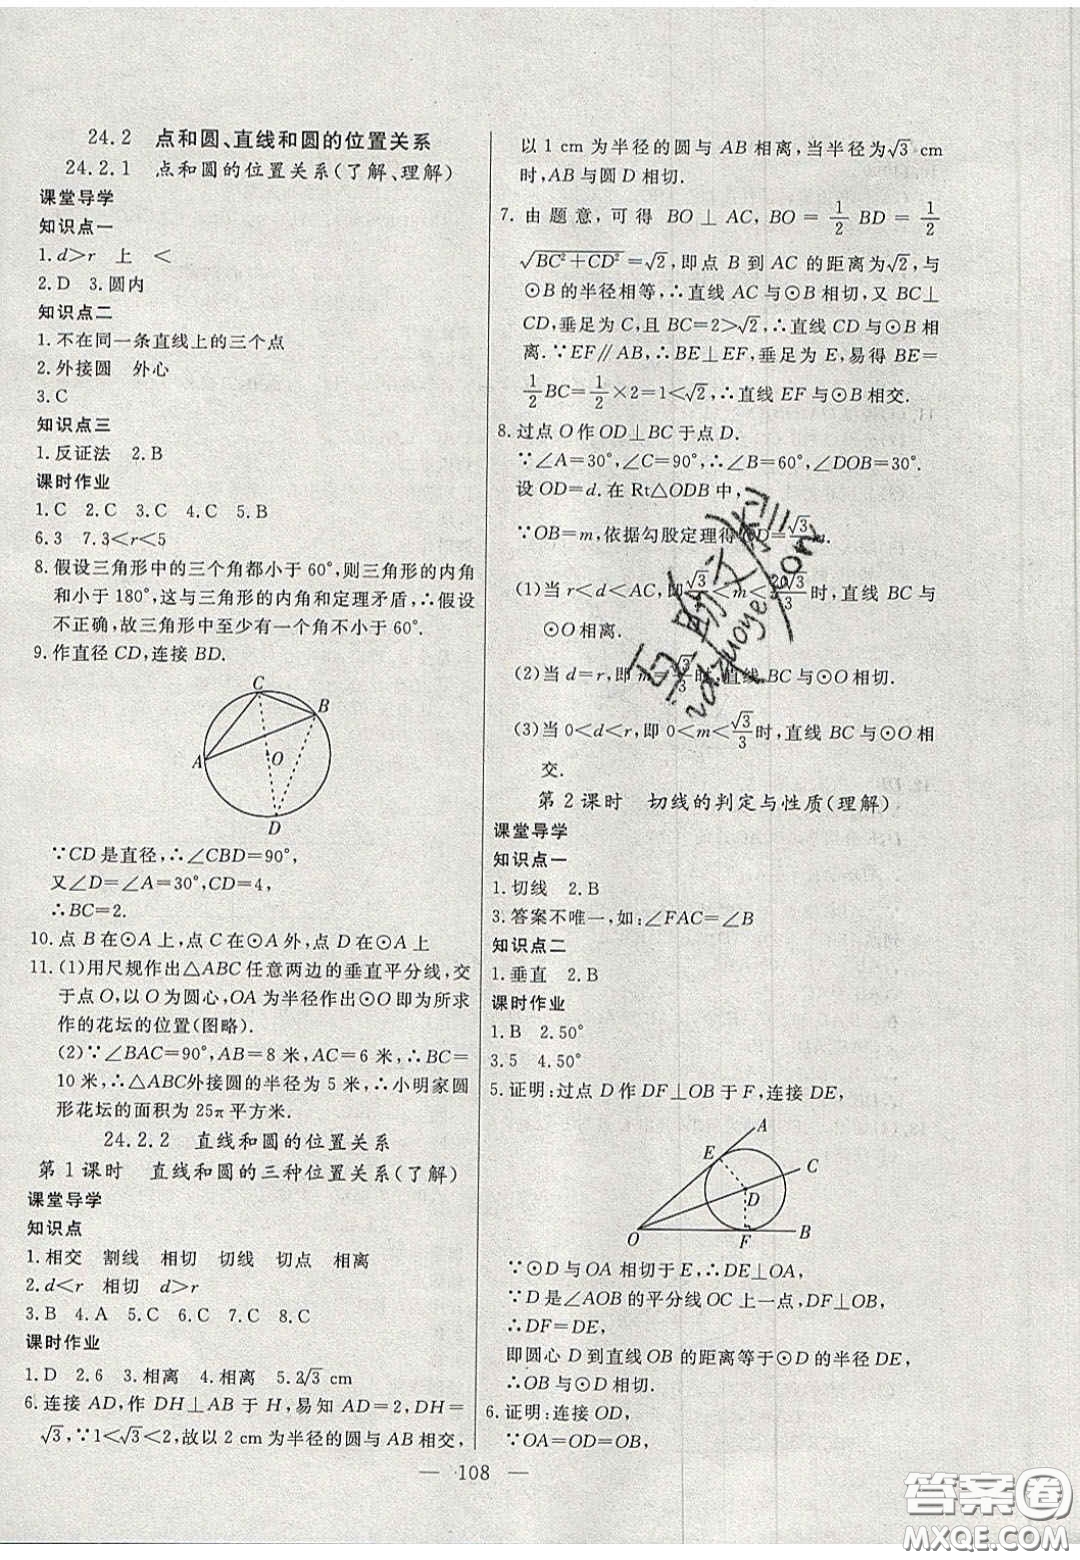 24.2 点和圆、直线和圆的位置关系
24.2.1 点和圆的位置关系(了解、理解)
课堂导学
知识点一
1.d>r 上 <
2.D 3.圆内
知识点二
1.不在同一条直线上的三个点
2.外接圆 外心
3.C
知识点三
1.反证法 2.B
课时作业
1.C 2.C 3.C 4.C 5.B
6.3 7.3<r<5
8.假设三角形中的三个角都小于60°,则三角形的内角
和小于180°,这与三角形的内角和定理矛盾,∴假设
不正确,故三角形中至少有一个角不小于60°.
9.作直径CD,连接BD.
C
B
A
O
D
∵CD是直径,∴∠CBD=90°,
又∠D=∠A=30°,CD=4,
∴BC=2.
10.点B在⊙A上,点C在⊙A外,点D在⊙A上
11.(1)用尺规作出△ABC任意两边的垂直平分线,交
于点O,以O为圆心,OA为半径作出⊙O即为所求
作的花坛的位置(图略).
(2)∵∠BAC=90°,AB=8米,AC=6米,∴BC=
10米,∴△ABC外接圆的半径为5米,∴小明家圆
形花坛的面积为25π平方米.
24.2.2 直线和圆的位置关系
第1课时 直线和圆的三种位置关系(了解)
课堂导学
知识点
1.相交 割线 相切 切线 切点 相离
2.d<r 相切 d>r
3.B 4.A 5.C 6.C 7.C 8.C
课时作业
1.D 2.6 3.相离 4.相离 5.2√3 cm
6.连接AD,作DH⊥AB于H,易知AD=2,DH=
√3,∵1<√3<2,故以2 cm为半径的圆与AB相交,
以1 cm为半径的圆与AB相离,当半径为√3 cm
时,AB与圆D相切.
7.由题意,可得BO⊥AC,BO=1/2 BD=1/2
√(BC²+CD²)=√2,即点B到AC的距离为√2,与
⊙B的半径相等,∴直线AC与⊙B相切,又BC⊥
CD,垂足为C,且BC=2>√2,∴直线CD与⊙B相
离.∵EF∥AB,∴BE⊥EF,垂足为E,易得BE=
1/2 BC=1/2×2=1<√2,∴直线EF与⊙B相交.
8.过点O作OD⊥BC于点D.
∵∠A=30°,∠C=90°,∴∠B=60°,∠DOB=30°.
设OD=d.在Rt△ODB中,
∵OB=m,依据勾股定理得OD=√3/
(1)当r<d<AC,即√3/ <m<20√3/3时,直线BC与
⊙O相离.
(2)当d=r,即m=√3/3时,直线BC与⊙O相切.
(3)当0<d<r,即0<m<√3/3时,直线BC与⊙O相
交.
第2课时 切线的判定与性质(理解)
课堂导学
知识点一
1.切线 2.B
3.答案不唯一,如:∠FAC=∠B
知识点二
1.垂直 2.B
课时作业
1.B 2.50°
3.5 4.50°
5.证明:过点D作DF⊥OB于F,连接DE,
A
E
C
D
O
F
B
∵⊙D与OA相切于E,∴DE⊥OA,
∵D是∠AOB的平分线OC上一点,DF⊥OB,
∴DF=DE,
即圆心D到直线OB的距离等于⊙D的半径DE,
∴OB与⊙D相切.
6.证明:连接OD,
∵OA=OD=OB,
— 108 —
答案圈
MXQE.COM